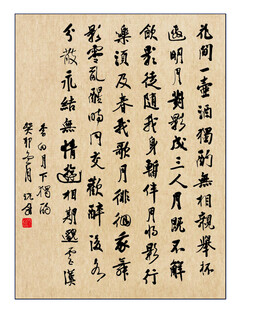 花間一壺酒獨酌無相親舉杯
邀明月對影成三人月既不解
飲影徒隨我身暫伴月將影行
樂須及春我歌月徘徊我舞
影零亂醒時同交歡醉後各
分散永結無情遊相期邈雲漢
李白月下獨酌
癸卯月